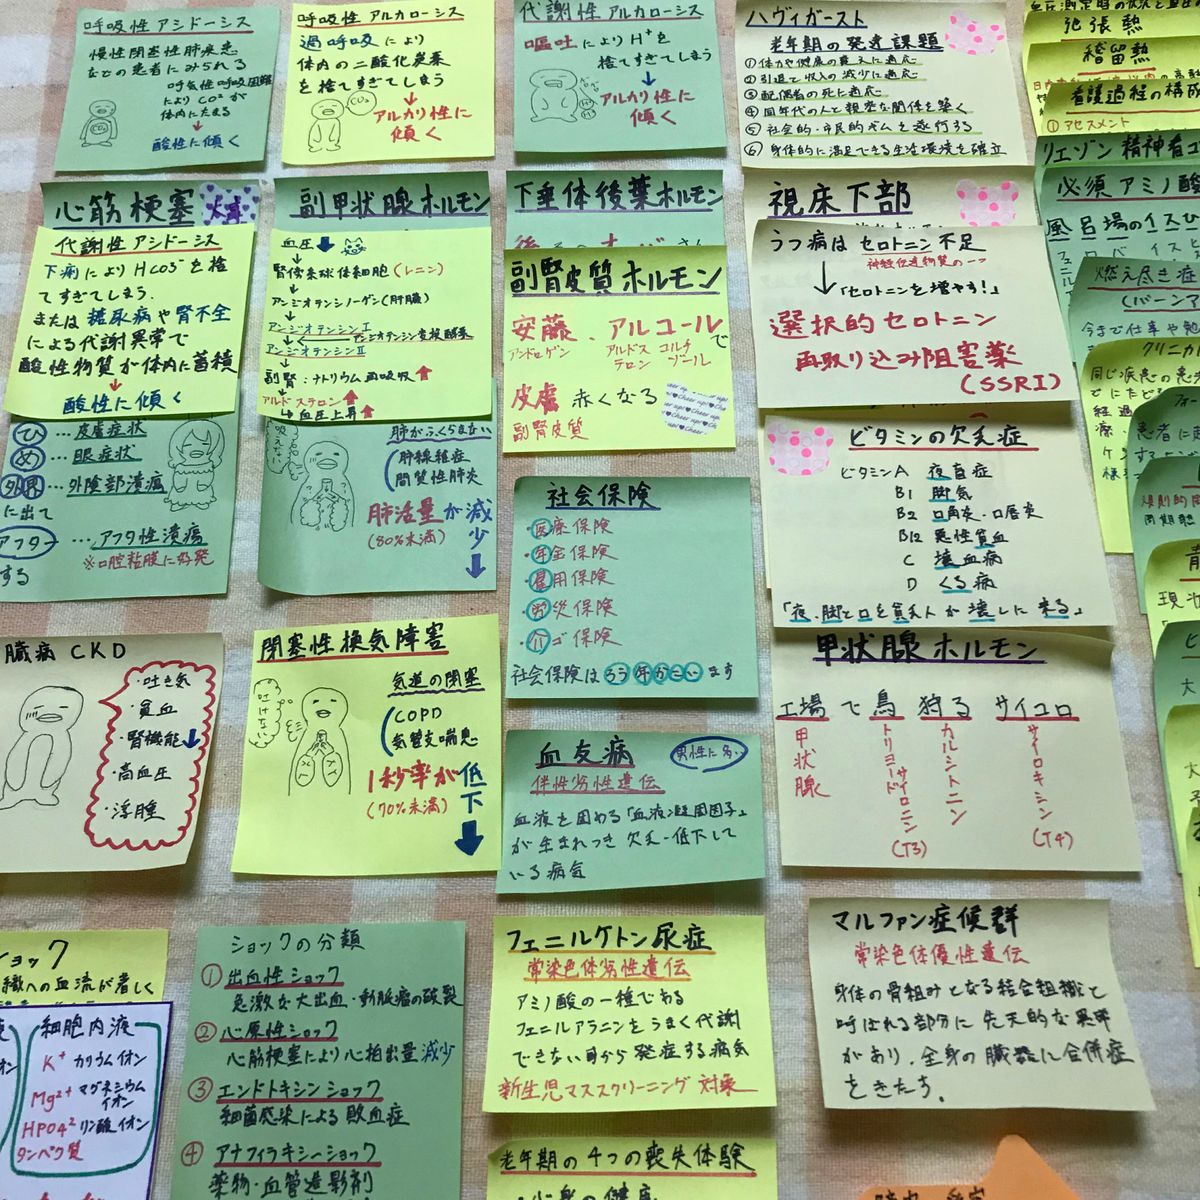 呼吸性アシドーシス
慢性閉塞性肺疾患
などの患者にみられる
呼気性呼吸困難
によりCO²が
体内にたまる
CO₂
↓
酸性に傾く
呼吸性アルカローシス
過呼吸により
体内の二酸化炭素
を捨てすぎてしまう
CO₂
↓
アルカリ性に
傾く
代謝性アルカローシス
嘔吐によりH⁺を
捨てすぎてしまう
↓
アルカリ性に
傾く
ハヴィガースト
老年期の発達課題
①体力や健康の衰えに適応
②引退で収入の減少に適応
③配偶者の死に適応
④同年代の人と親密な関係を築く
⑤社会的・市民的ギムを遂行する
⑥身体的に満足できる生活環境を確立
弛張熱
稽留熱
看護過程の構成
①アセスメント
リエゾン精神看
必須アミノ酸
風呂場のイスひ
燃え尽き症
(バーンア
今まで仕事や勉
クリニカル
同じ疾患の患
心筋梗塞
代謝性アシドーシス
下痢によりHCO₃⁻を捨
てすぎてしまう.
または糖尿病や腎不全
による代謝異常で
酸性物質が体内に蓄積
↓
酸性に傾く
ひ…皮膚症状
め…眼症状
外界…外陰部潰瘍
に出て
アフター…アフタ性潰瘍
※口腔粘膜に好発
する
副甲状腺ホルモン
血圧↓
↓
腎傍糸球体細胞(レニン)
↓
アンジオテンシノーゲン(肝臓)
↓
アンジオテンシンⅠ
↓←アンジオテンシン変換酵素
アンジオテンシンⅡ
↓
副腎:ナトリウム再吸収↑
↓
アルドステロン↑
↳血圧上昇↑
吸えない
肺がふくらまない
肺線維症
間質性肺炎
肺活量が減少↓
(80%未満)
下垂体後葉ホルモン
副腎皮質ホルモン
安藤、アルコールで
アンドロゲン
アルドステロン
コルチゾール
皮膚赤くなる
副腎皮質
Cheer up!
視床下部
うつ病はセロトニン不足
神経伝達物質の一つ
↓「セロトニンを増やす!」
選択的セロトニン
再取り込み阻害薬
(SSRI)
ビタミンの欠乏症
ビタミンA 夜盲症
B1 脚気
B2 口角炎・口唇炎
B12 悪性貧血
C 壊血病
D くる病
「夜、脚と口を貧乏人が壊しに来る」
社会保険
・医療保険
・年金保険
・雇用保険
・労災保険
・介ゴ保険
社会保険はろう年かこいます
臓病CKD
・吐き気
・貧血
・腎機能↓
・高血圧
・浮腫
閉塞性換気障害
吐けない
気道の閉塞
COPD
気管支喘息
1秒率が低下↓
(70%未満)
血友病
男性に多い
伴性劣性遺伝
血液を固める「血液凝固因子」
が生まれつき欠乏・低下して
いる病気
甲状腺ホルモン
工場で鳥狩るサイコロ
甲状腺
トリヨードサイロニン(T3)
カルシトニン
サイロキシン(T4)
ョック
織への血流が著しく
細胞内液
K⁺ カリウムイオン
Mg²⁺ マグネシウムイオン
HPO4² リン酸イオン
タンパク質
ショックの分類
①出血性ショック
急激な大出血・動脈瘤の破裂
②心原性ショック
心筋梗塞により心拍出量減少
③エンドトキシンショック
細菌感染による敗血症
④アナフィラキシーショック
薬物・血管造影剤
フェニルケトン尿症
常染色体劣性遺伝
アミノ酸の一種である
フェニルアラニンをうまく代謝
できない事から発症する病気
新生児マススクリーニング対象
老年期の4つの喪失体験
・心身の健康
マルファン症候群
常染色体優性遺伝
身体の骨組みとなる結合組織と
呼ばれる部分に先天的な異常
があり、全身の臓器に合併症
をきたす。